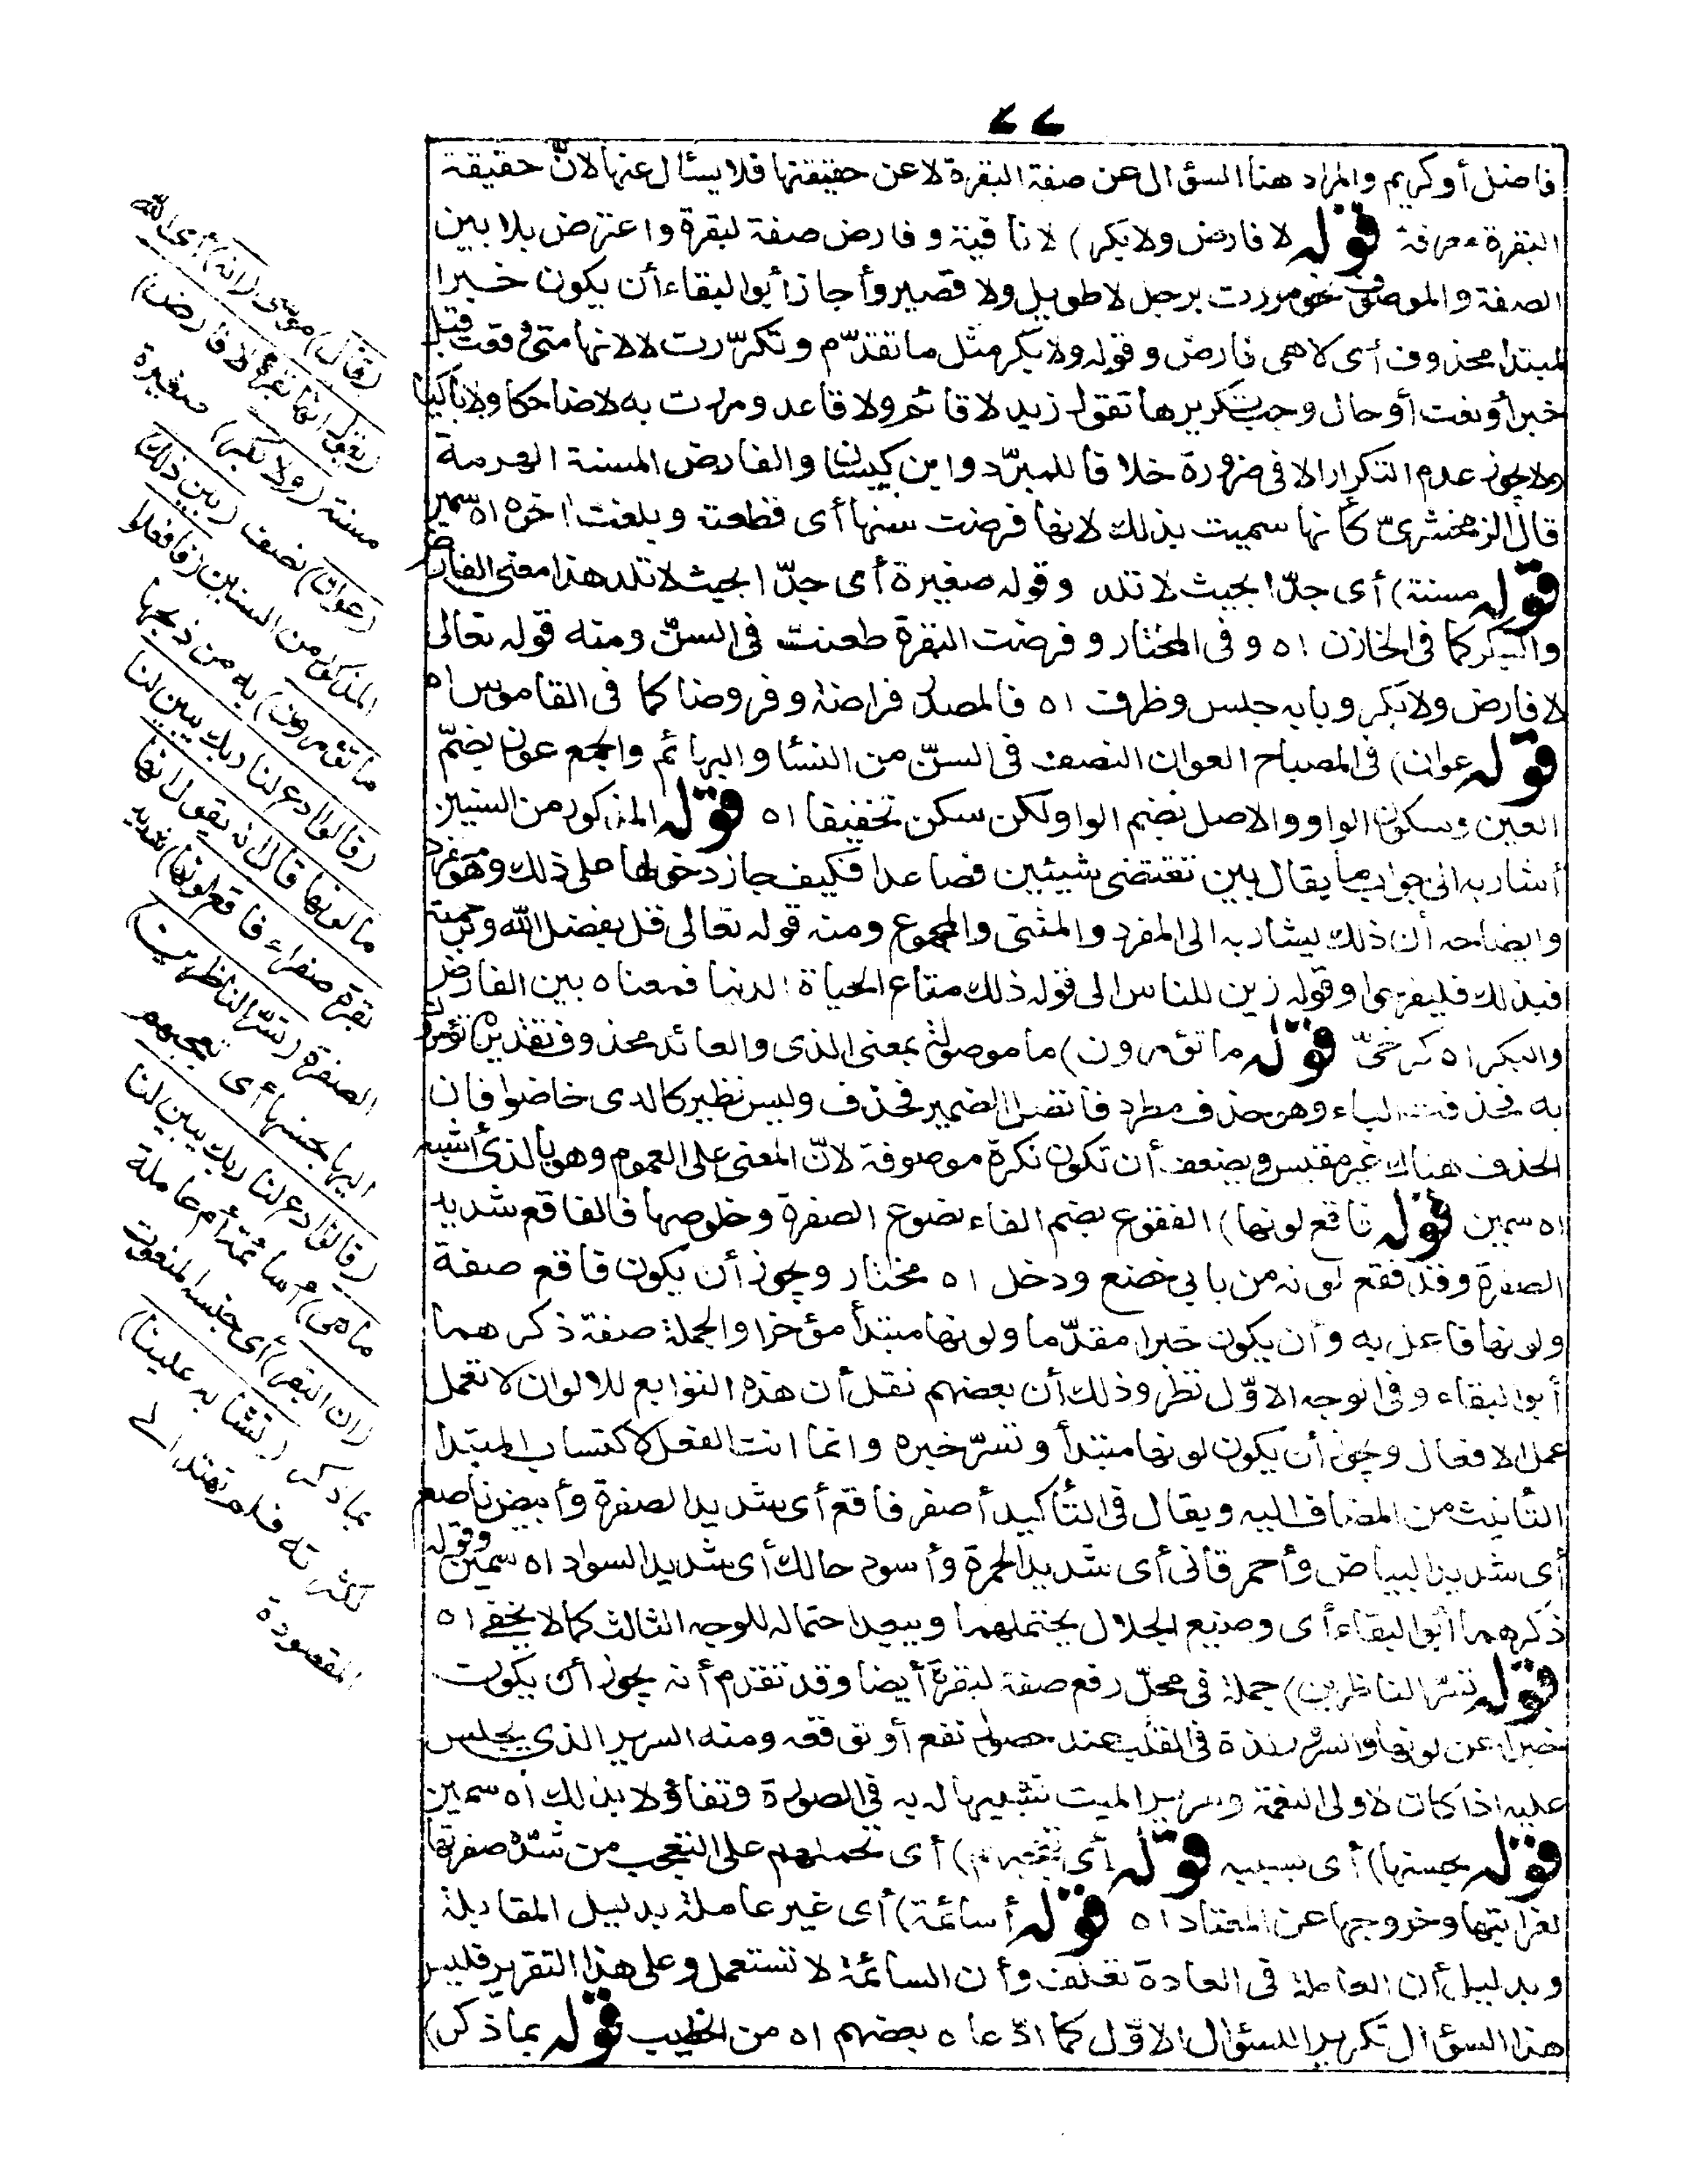 ٧٧
فاضل أو كريم والمراد هنا السؤال عن صفة البقرة لا عن حقيقتها فلا يسئال عنها لانّ حقيقة
البقرة معرفة قوله لا فارض ولا بكر) لا نافية وفارض صفة لبقرة واعترض بلا بين
الصفة والموصوف نحو مررت برجل لا طويل ولا قصير وأجاز أبو البقاء أن يكون خبرا
لمبتدا محذوف أى لا هى فارض وقوله ولا بكر مثل ما تقدّم وتكرّرت لا لانها متى وقعت قبل
خبر أو نعت أو حال وجب تكريرها تقول زيد لا قائم ولا قاعد ومررت به لا ضاحكا ولا باكيا
ولا يجوز عدم التكرار الا فى ضرورة خلافا للمبرّد وابن كيسان والفارض المسنة الهرمة
قال الزمخشرىّ كأنها سميت بذلك لانها فرضت سنها أى قطعته وبلغت اخره اه سمين
قوله مسنة) أى جدّا بحيث لا تلد وقوله صغيرة أى جدّا بحيث لا تلد هذا معنى الفارض
والبكر كما فى الخازن اه وفى المختار وفرضت البقرة طعنت فى السنّ ومنه قوله تعالى
لا فارض ولا بكر وبابه جلس وظرف اه فالمصدر فراضة وفروضا كما فى القاموس اه
قوله عوان) فى المصباح العوان النصف فى السنّ من النسا والبهائم والجمع عون بضمّ
العين وسكون الواو والاصل بضم الواو لكن سكن تخفيفا اه قوله المذكور من السنين
أشار به الى جواب ما يقال بين تقتضى شيئين فصاعدا فكيف جاز دخولها على ذلك وهو مفرد
وايضاحه أن ذلك يشار به الى المفرد والمثنى والمجموع ومنه قوله تعالى قل بفضل الله وبرحمته
فبذلك فليفرحوا وقوله زين للناس الى قوله ذلك متاع الحياة الدنيا فمعناه بين الفارض
والبكر اه كرخىّ قوله ما تؤمرون) ما موصولة بمعنى الذى والعائد محذوف تقديره تؤمرون
به فحذفت الباء وهو حذف مطرد فاتصل الضمير فحذف وليس نظير كالذى خاضوا فان
الحذف هناك غير مقيس ويضعف أن تكون نكرة موصوفة لانّ المعنى على العموم وهو بالذى أشبه
اه سمين قوله فاقع لونها) الفقوع بضم الفاء نصوع الصفرة وخلوصها فالفاقع شديد
الصفرة وقد فقع لونه من بابى خضع ودخل اه مختار ويجوز أن يكون فاقع صفة
ولونها فاعل به وأن يكون خبرا مقدّما ولونها مبتدأ مؤخرا والجملة صفة ذكرهما
أبو البقاء وفى الوجه الاوّل نظر وذلك أن بعضهم نقل أن هذه التوابع للالوان لا تعمل
عمل الافعال ويجوز أن يكون لونها مبتدأ وتسرّ خبره وانما انت الفعل لاكتساب المبتدا
التأنيث من المضاف اليه ويقال فى التأكيد أصفر فاقع أى شديد الصفرة وأبيض ناصع
أى شديد البياض وأحمر قانى أى شديد الحمرة وأسود حالك أى شديد السواد اه سمين وقوله
ذكرهما أبو البقاء أى وصنيع الجلال يحتملهما ويبعد احتماله للوجه الثالث كما لا يخفى اه
قوله تسرّ الناظرين) جملة فى محلّ رفع صفة لبقرة أيضا وقد تقدّم أنه يجوز أن يكون
خبرا عن لونها والسرور لذة فى القلب عند حصول نفع أو توقعه ومنه السرير الذى يجلس
عليه اذا كان لاولى النعمة وسرير الميت تشبيها له به فى الصورة وتفاؤلا بذلك اه سمين
قوله بحسنها) أى بسببه قوله أى تعجبهم) أى تحملهم على التعجب من شدّة صفرتها
لغرابتها وخروجها عن المعتاد اه قوله أسائمة) أى غير عاملة بدليل المقابلة
وبدليل أن العاملة فى العادة تعلف وأن السائمة لا تستعمل وعلى هذا التقرير فليس
هذا السؤال تكريرا للسؤال الاوّل كما ادّعاه بعضهم اه من الخطيب قوله بما ذكر)
(قال) موسى (انه) أى الله
(يقول انها بقرة لا فارض)
مسنة (ولا بكر) صغيرة
(عوان) نصف (بين ذلك)
المذكور من السنين (فافعلوا
ما تؤمرون) به من ذبحها
(قالوا ادع لنا ربك يبين لنا
ما لونها قال انه يقول انها
بقرة صفراء فاقع لونها) شديد
الصفرة (تسرّ الناظرين)
اليها بحسنها أى تعجبهم
(قالوا ادع لنا ربك يبين لنا
ما هى) أسائمة أم عاملة
(ان البقر) أى جنسه المنعوت
بما ذكر (تشابه علينا)
لكثرته فلم نهتد الى
المقصودة